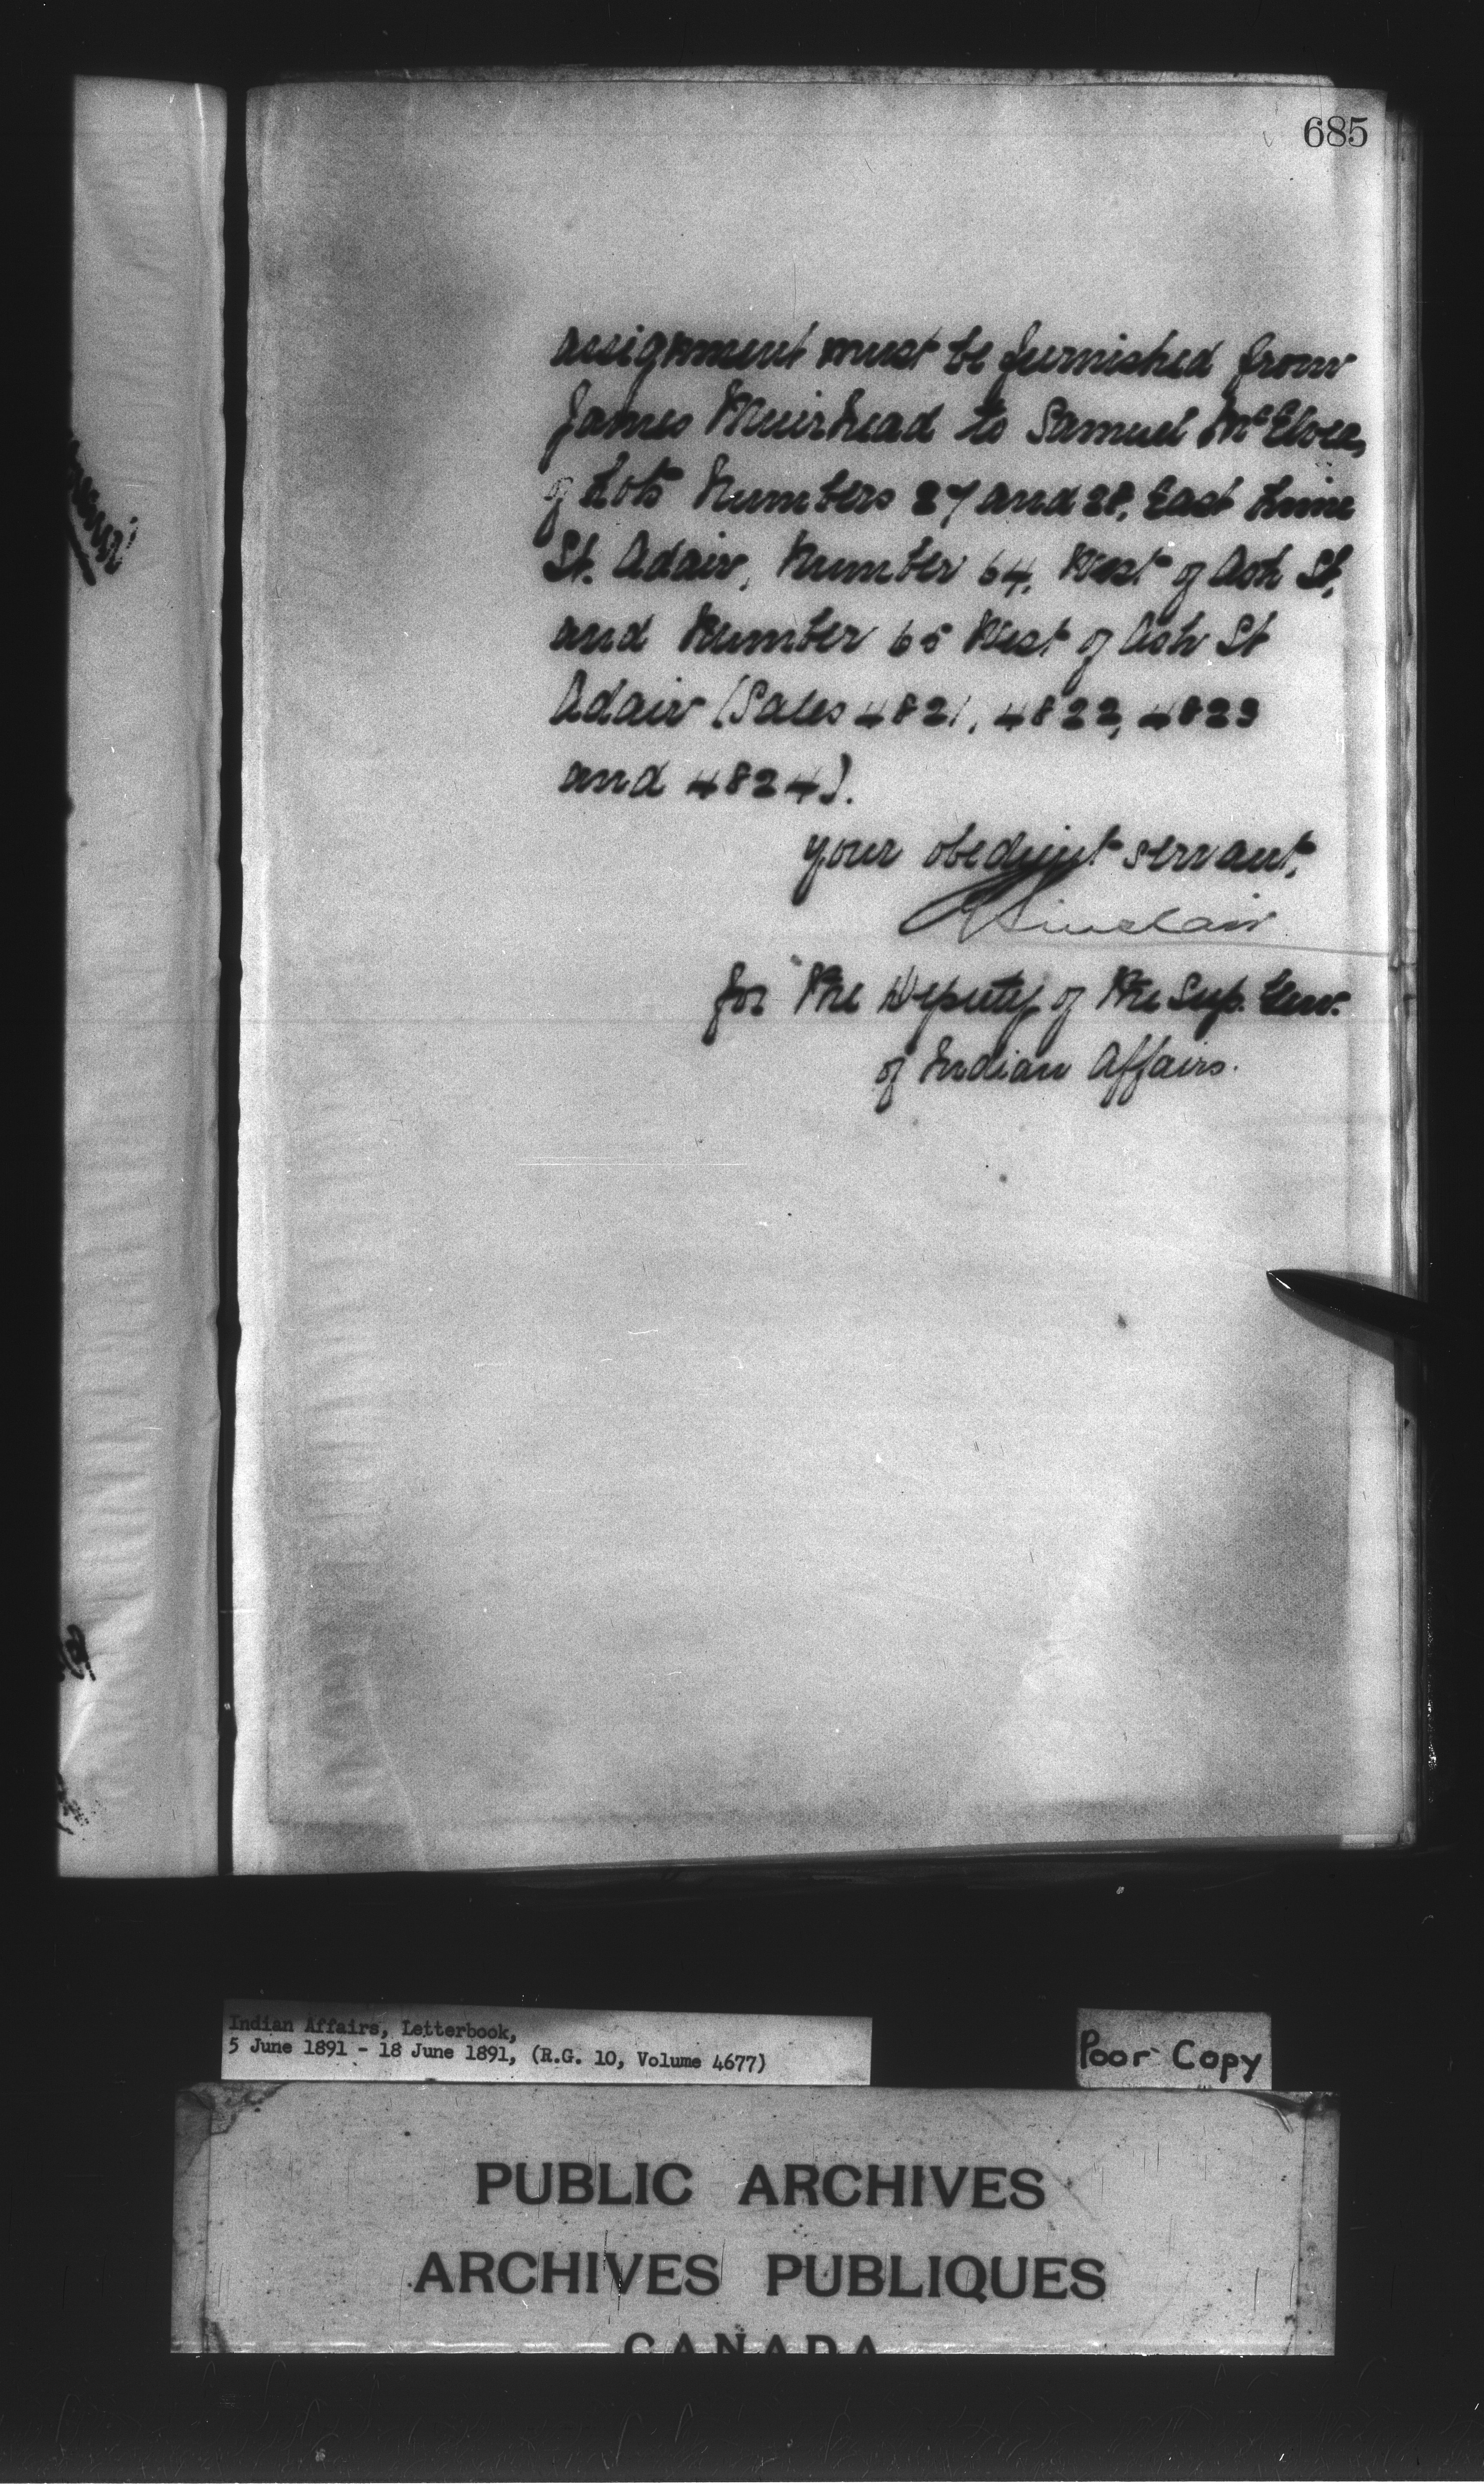 685
assignment must be furnished from
James Muirhead to Samuel McElvea,
of Lots Numbers 27 and 28, East Lime
St. Adair, Number 64, West of Ash St,
and Number 65 West of Ash St
Adair (Sales 4821, 4822, 4823
and 4824).
your obedient servant,
Sinclair
for the Deputy of the Sup. Gen.
of Indian Affairs.
Indian Affairs, Letterbook,
5 June 1891 - 18 June 1891, (R.G. 10, Volume 4677)
Poor Copy
PUBLIC ARCHIVES
ARCHIVES PUBLIQUES
CANADA